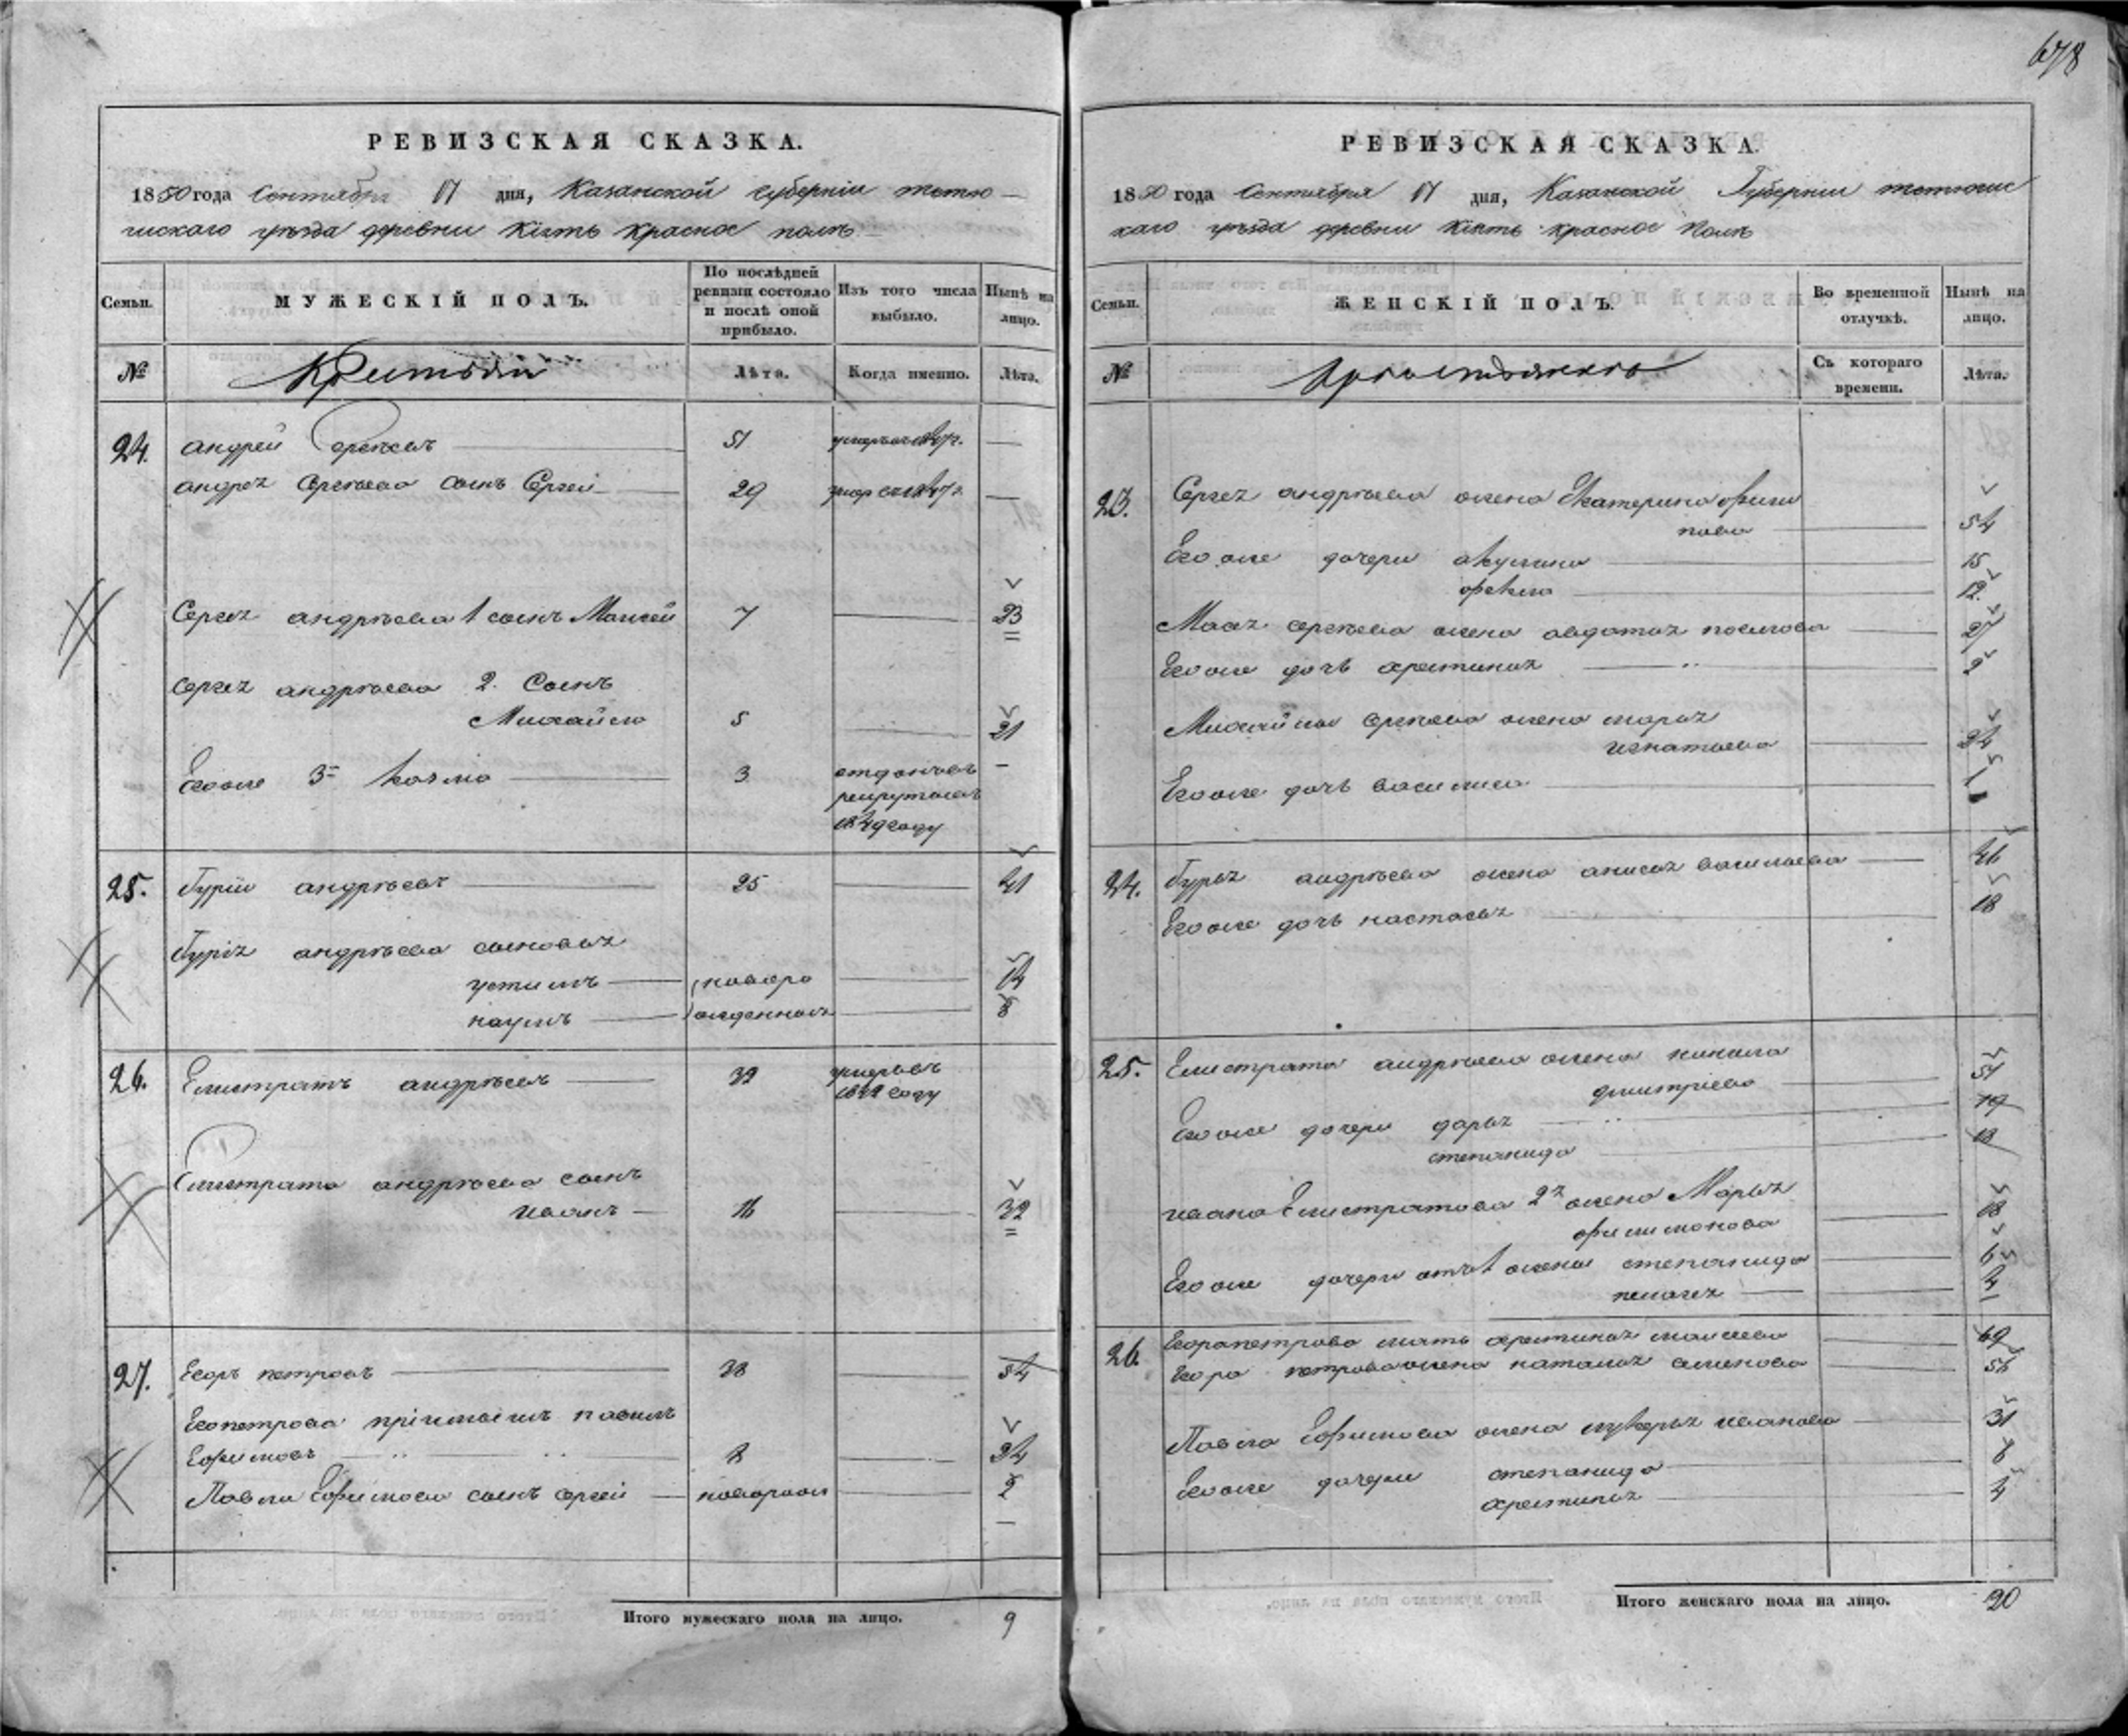 678
РЕВИЗСКАЯ СКАЗКА.
1850 года Сентября 17 дня, Казанской губерніи тетю-
шскаго уѣзда деревни Кіять Красное полѣ
Семьи.
МУЖЕСКІЙ ПОЛЪ.
По послѣдней ревизіи состояло и послѣ оной прибыло.
Изъ того числа выбыло.
Нынѣ на лицо.
№
Лѣта.
Когда именно.
Лѣта.
24. андрей Сергеевъ 51 —
андрея Сергеева сынъ Сергей 29 —
Сергея андрѣева 1 сынъ Моисей 7 23
Сергея андрѣева 2. Сынъ
Михайло 5 21
Егоже 3 — Козма 3 отданъ въ —
рекруты въ
1849 году
25. Гурій андрѣевъ 25 41
Гурія андрѣева сыновья
устимъ новоро 14
наумъ жденныя 8
26. Елистратъ андрѣевъ 32 умеръ въ
году
Елистрата андрѣева сынъ
иванъ 16 32
27. Егоръ петровъ 38 54
Его петрова пріимышъ павилъ
Ефимовъ 8 24
Павла Ефимова сынъ сергей новорож 2
Итого мужескаго пола на лицо. 9
РЕВИЗСКАЯ СКАЗКА.
1850 года Сентября 17 дня, Казанской Губерніи тетюшс
каго уѣзда деревни Кіять Красное Полѣ
Семьи.
ЖЕНСКІЙ ПОЛЪ.
Во временной отлучкѣ.
Нынѣ на лицо.
№
Съ котораго времени.
Лѣта.
23. Сергея андрѣева жена Екатерина фили
пова 54
Его же дочери акулина 15
фекла 12
Моисея сергѣева жена авдотья 27
Егоже дочь хрестинья 2
Михайлы сергѣева жена марья
игнатьева 24
Егоже дочь василиса 1
24. Гурья андрѣева жена анисья васильева 46
Егоже дочь настасья 18
25. Елистрата андрѣева жена
дмитріева 51
Егоже дочери дарья 19
степанида 13
ивана Елистратова 2я жена Марья
филимонова 18
Егоже дочери отъ 1 жены степанида 6
пелагея 4
26. Егора петрова мать хрестинья моисеева 69
Егора петрова жена наталья семенова
Павла Ефимова жена лукерья иванова 31
Егоже дочери степанида 8
хрестинья 4
Итого женскаго пола на лицо. 20